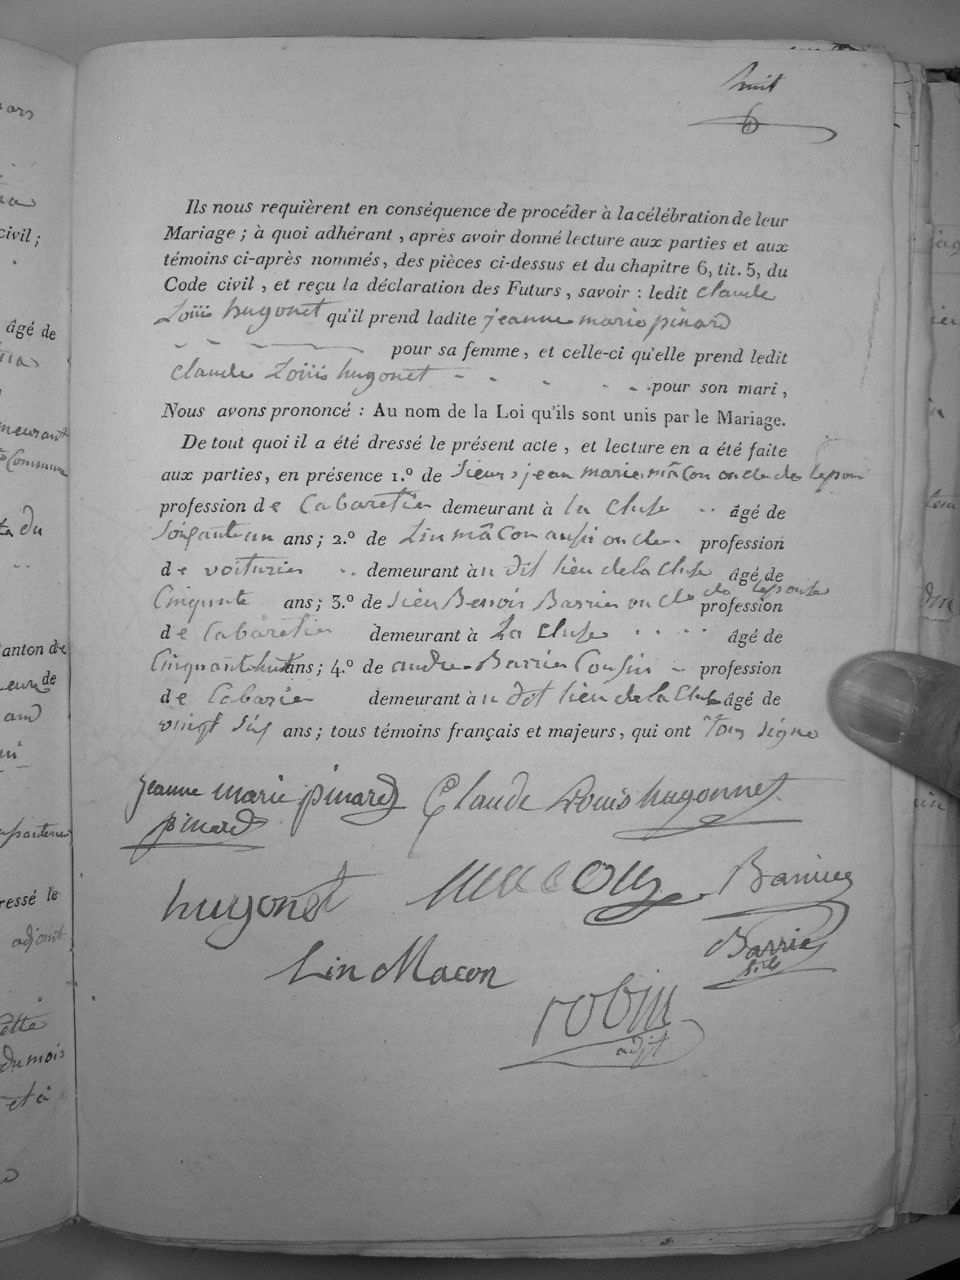 huit
Ils nous requièrent en conséquence de procéder à la célébration de leur
Mariage ; à quoi adhérant , après avoir donné lecture aux parties et aux
témoins ci-après nommés, des pièces ci-dessus et du chapitre 6, tit. 5, du
Code civil , et reçu la déclaration des Futurs , savoir : ledit claude
Loüis hugonet qu'il prend ladite jeanne marie pinard
pour sa femme, et celle-ci qu'elle prend ledit
claude Loüis hugonet pour son mari ,
Nous avons prononcé : Au nom de la Loi qu'ils sont unis par le Mariage.
De tout quoi il a été dressé le présent acte , et lecture en a été faite
aux parties, en présence 1.º de sieurs jean marie mâcon oncle de lepouse
profession de Cabaretier demeurant à la Cluse âgé de
soixante un ans ; 2.º de Lin mâcon aussi oncle profession
de voiturier demeurant à u dit lieu de la Cluse âgé de
Cinquante ans ; 3.º de sieur Benois Barrier oncle de lepouse profession
de Cabaretier demeurant à La Cluse âgé de
Cinquante huit ans ; 4.º de andre Barrier Cousin profession
de demeurant à u dit lieu de la Cluse âgé de
vingt six ans ; tous témoins français et majeurs, qui ont tous signé
jeanne marie pinard Claude Louis hugonnet
pinard
hugonet macon Barrier
Lin Macon Barrier
fils
robin
adjt
civil ;
âgé de
meurant
Commune
du
canton de
de
ressé le
adjoint
Cette
du mois
et à